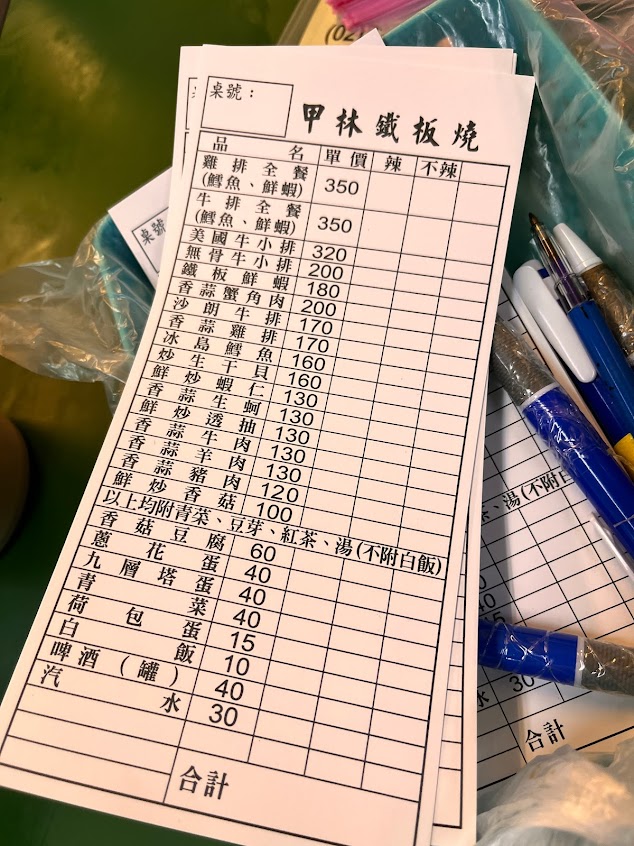 (02)
桌號：
甲林鐵板燒
品名 單價 辣 不辣
雞排全餐
(鱈魚、鮮蝦) 350
牛排全餐
(鱈魚、鮮蝦) 350
美國牛小排 320
無骨牛小排 200
鐵板鮮蝦 180
香蒜蟹角肉 200
沙朗牛排 170
香蒜雞排 170
冰島鱈魚 160
炒生干貝 160
鮮炒蝦仁 130
香蒜生蚵 130
鮮炒透抽 130
香蒜牛肉 130
香蒜羊肉 130
香蒜豬肉 120
鮮炒香菇 100
以上均附青菜、豆芽、紅茶、湯(不附白飯)
香菇豆腐 60
蔥花蛋 40
九層塔蛋 40
青菜 40
荷包蛋 15
白飯 10
啤酒(罐) 40
汽水 30
合計
桌號
、湯(不附白
水 30
合計